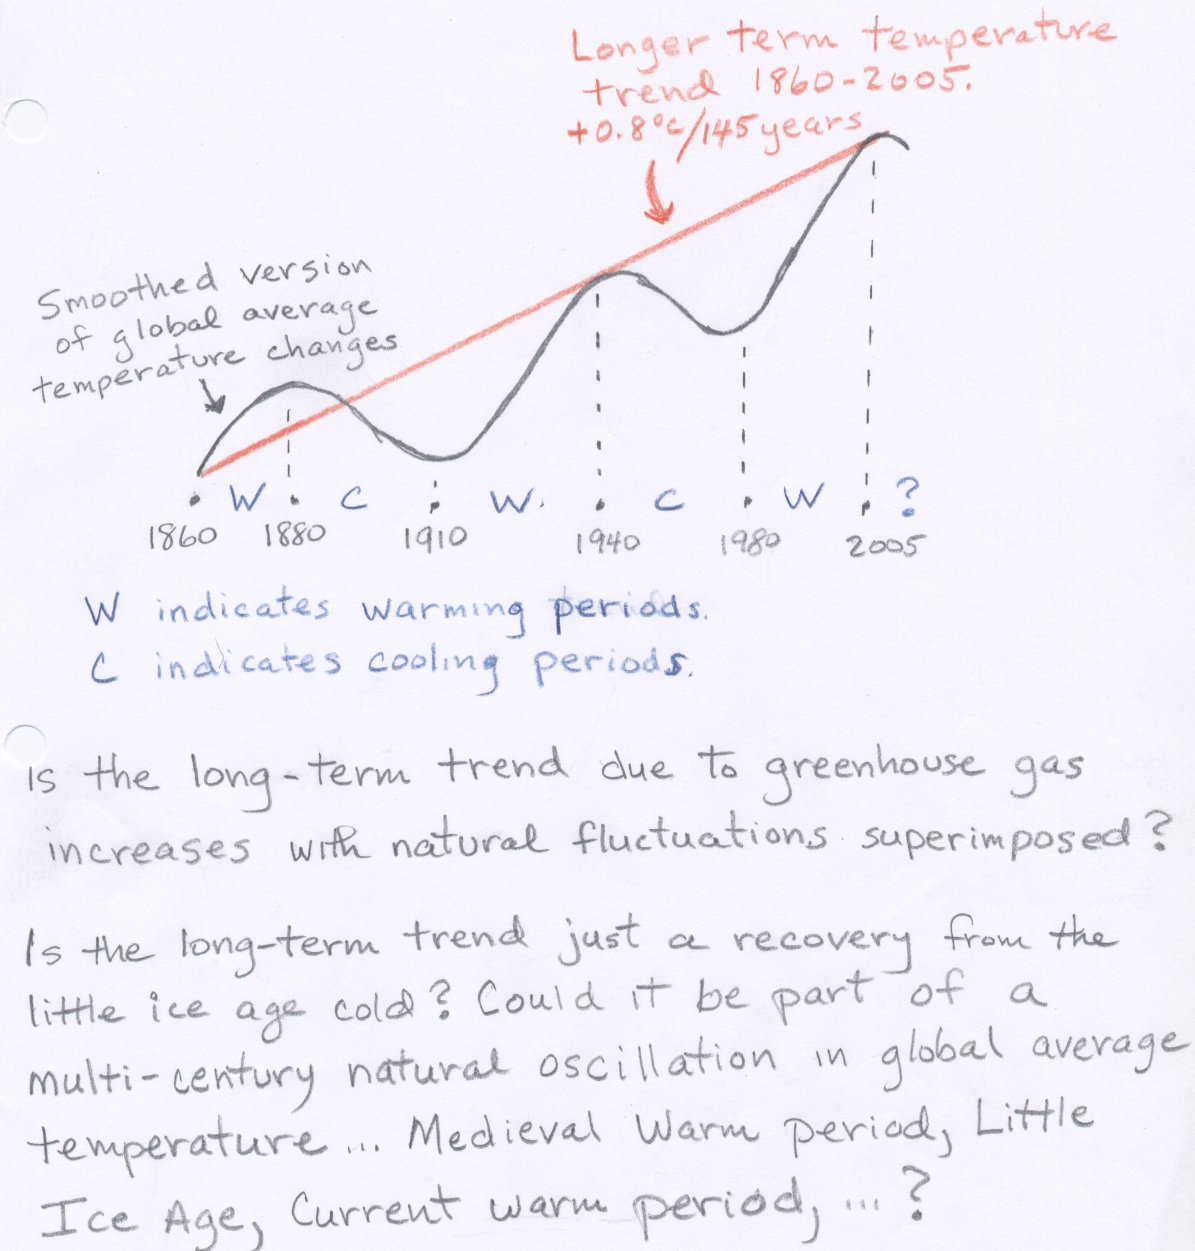 Longer term temperature
trend 1860-2005.
+0.8°c/145 years
Smoothed version
of global average
temperature changes
W C W. C W ?
1860 1880 1910 1940 1980 2005
W indicates warming periods.
C indicates cooling periods.
Is the long-term trend due to greenhouse gas
increases with natural fluctuations superimposed?
Is the long-term trend just a recovery from the
little ice age cold? Could it be part of a
multi-century natural oscillation in global average
temperature... Medieval Warm period, Little
Ice Age, Current warm period, ... ?